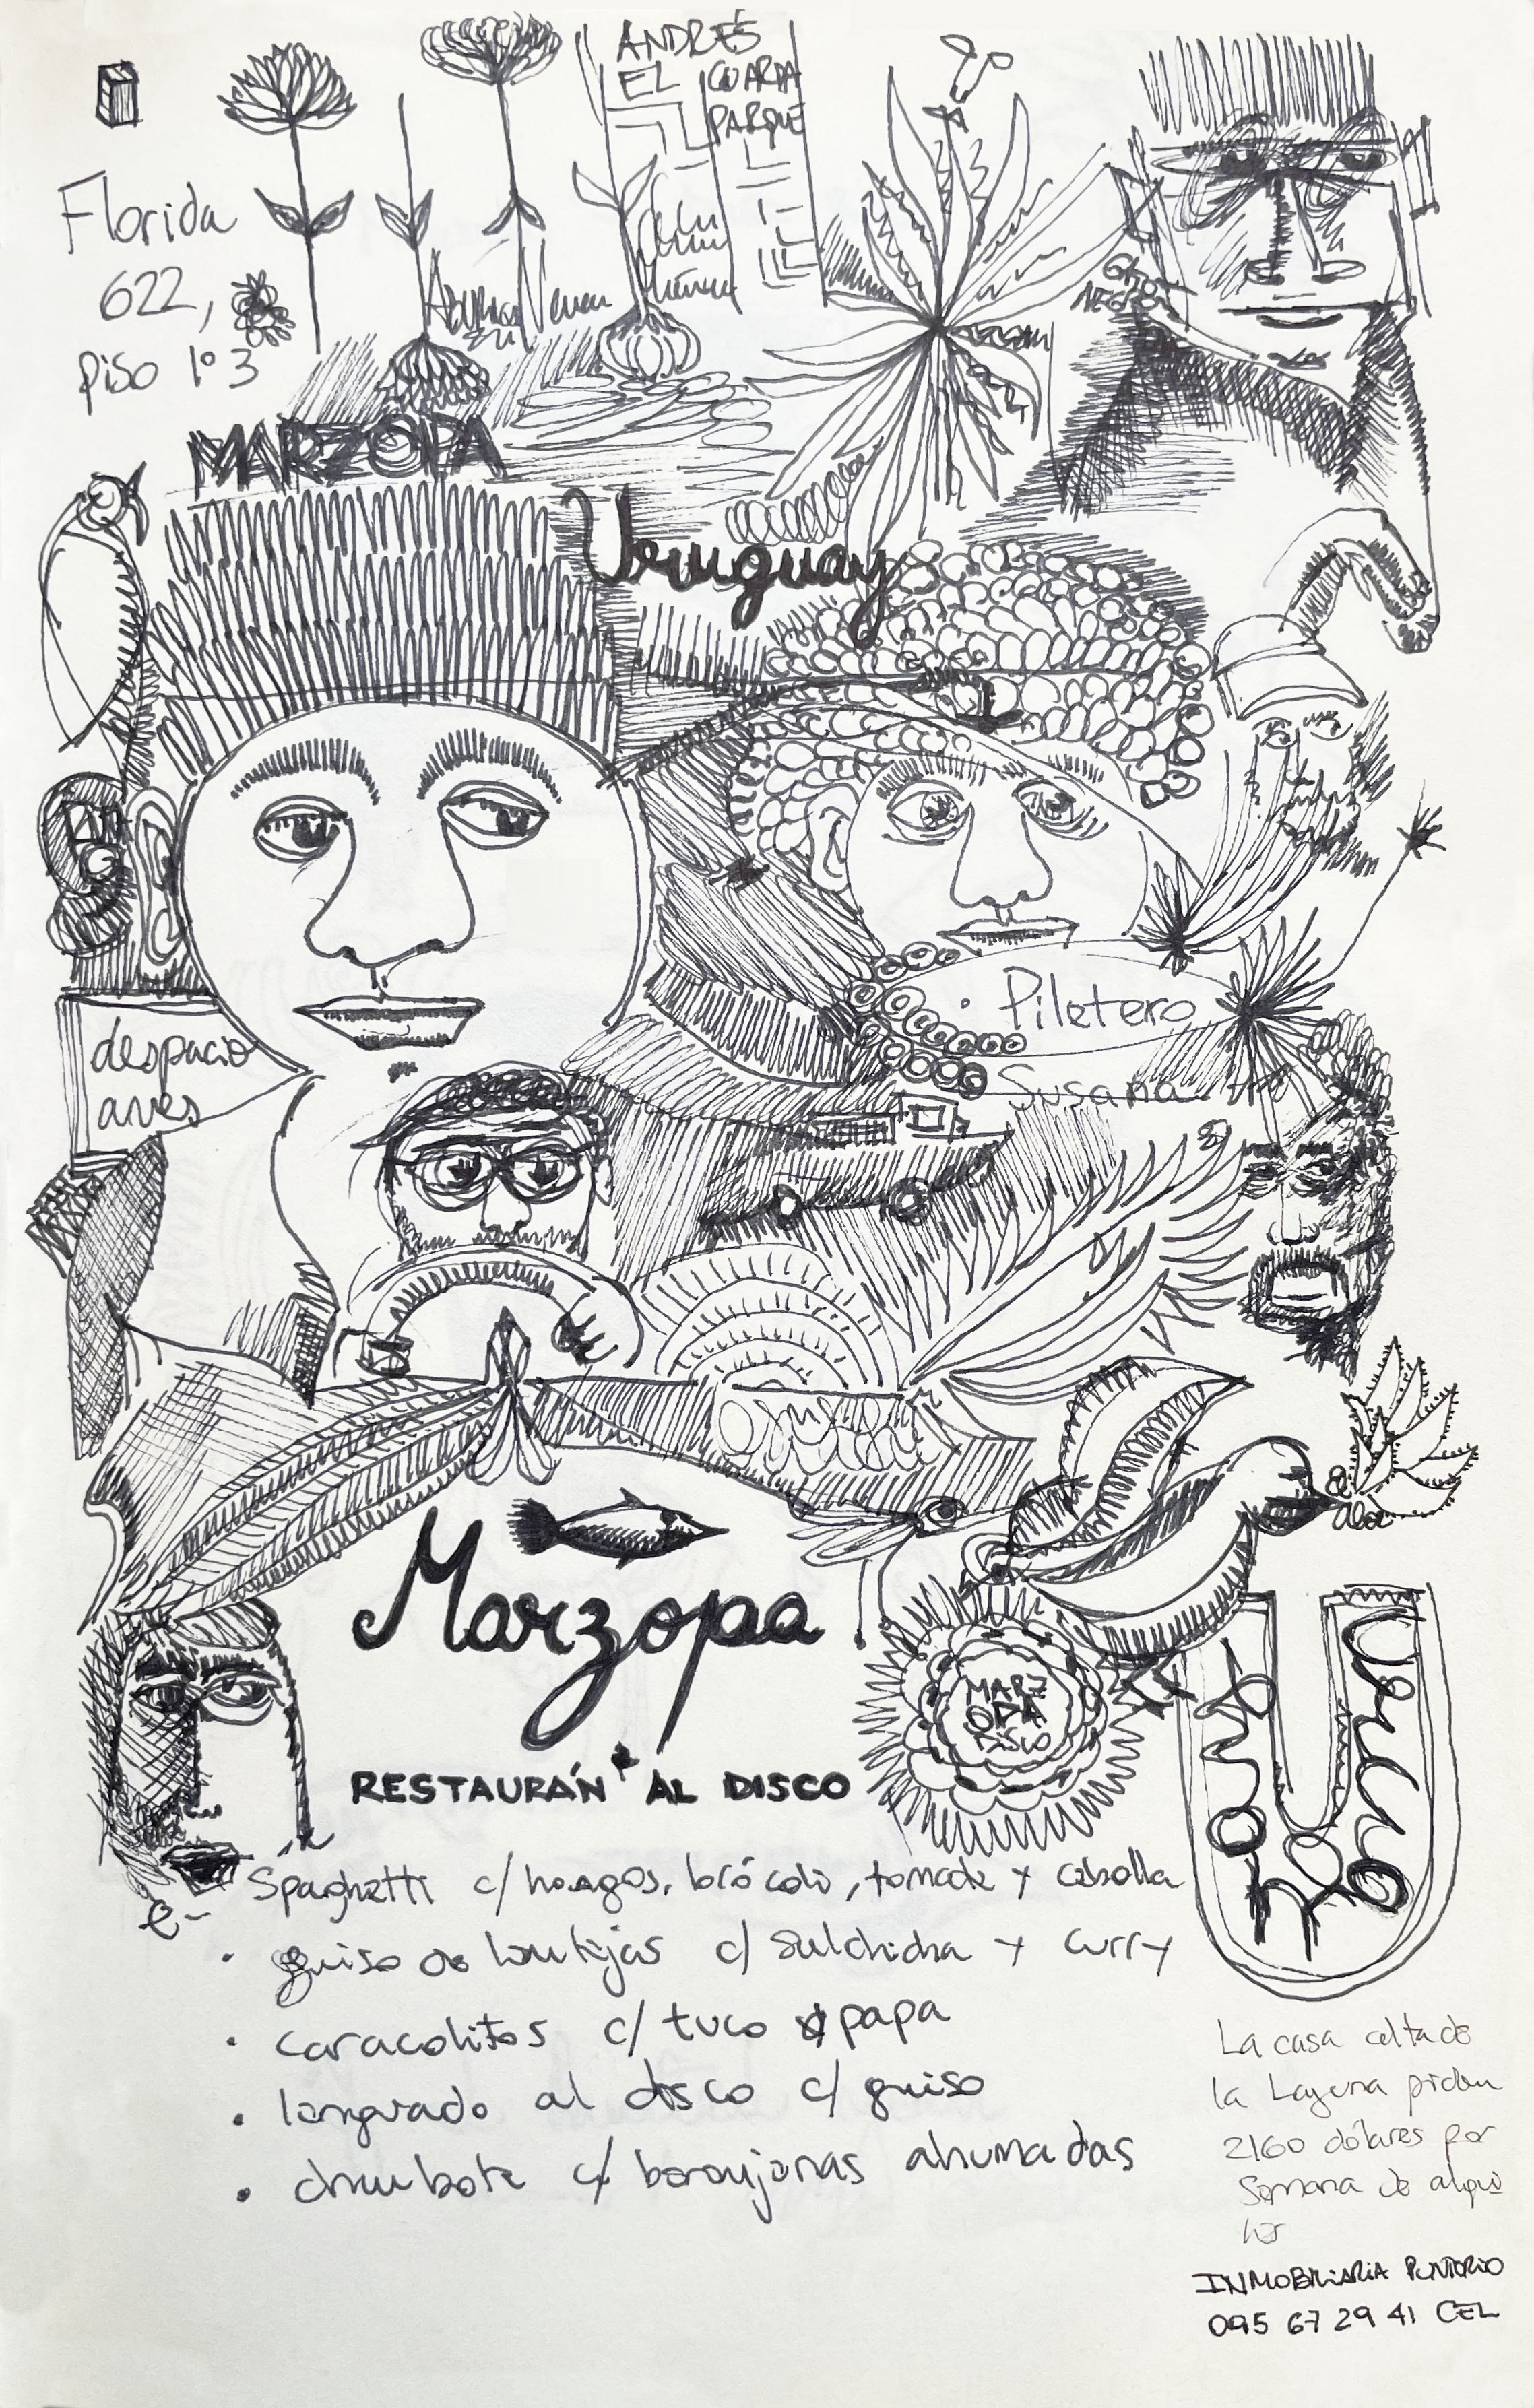 ANDRÉS
EL GUARDA
PARQUE
Florida
622,
piso 1º 3
MARZOPA
Uruguay
despacio
aves
Piletero
Susana
el
aloe
Marzopa
RESTAURÁN AL DISCO
MARZ
OPA
DISCO
Spaghetti c/ hongos, brócoli, tomate y cebolla
guiso de lentejas c/ salchicha y curry
caracolitos c/ tuco y papa
lenguado al disco c/ guiso
chumbote c/ berenjenas ahumadas
La casa celta de
la Laguna piden
2160 dólares por
semana de alqui
ler
INMOBILIARIA PUNTORIO
095 67 29 41 CEL